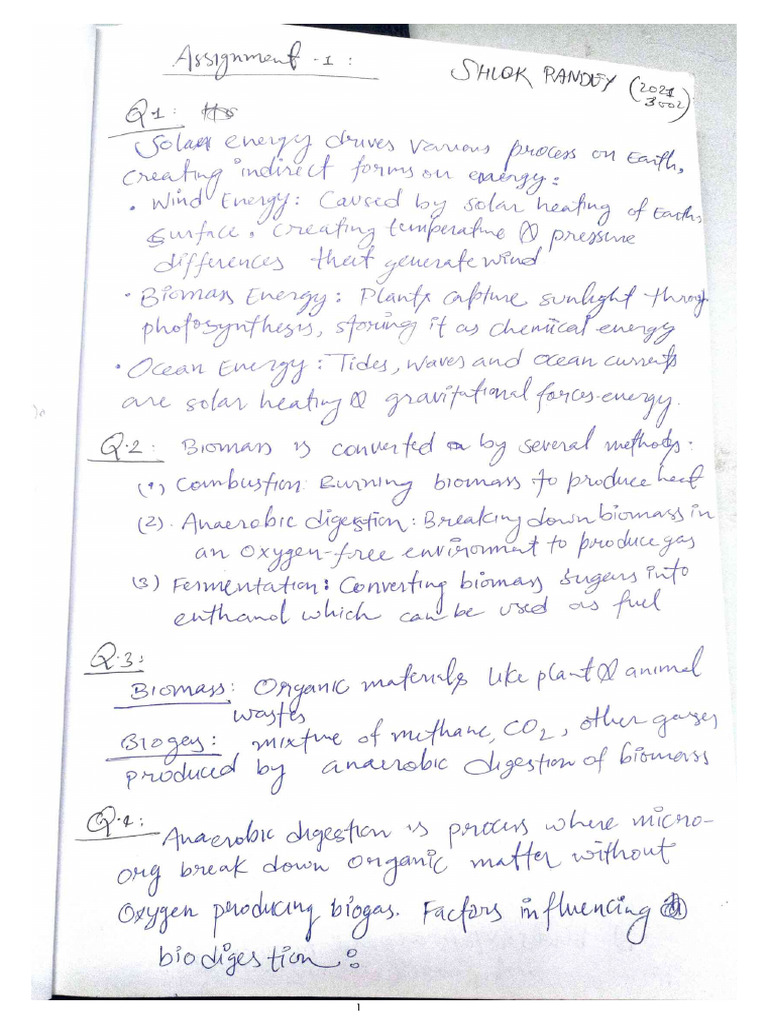 Assignment -1 :
SHLOK PANDEY (2021
3002)
Q1:
Solar energy drives various process on Earth,
creating indirect forms on energy:
• Wind Energy: Caused by solar heating of Earth's
surface, creating temperature & pressure
differences that generate wind
• Biomass Energy: Plants capture sunlight through
photosynthesis, storing it as chemical energy
• Ocean Energy: Tides, waves and ocean currents
are solar heating & gravitational forces energy.
Q.2: Biomass is converted by several methods:
(1) Combustion: Burning biomass to produce heat
(2). Anaerobic digestion: Breaking down biomass in
an oxygen-free environment to produce gas
(3) Fermentation: Converting biomass sugars into
enthanol which can be used as fuel
Q.3:
Biomass: Organic materials like plant & animal
wastes
Biogas: mixture of methane, CO2, other gases
produced by anaerobic digestion of biomass
Q.4:
Anaerobic digestion is process where micro-
org break down organic matter without
oxygen producing biogas. Factors influencing
biodigestion:
1